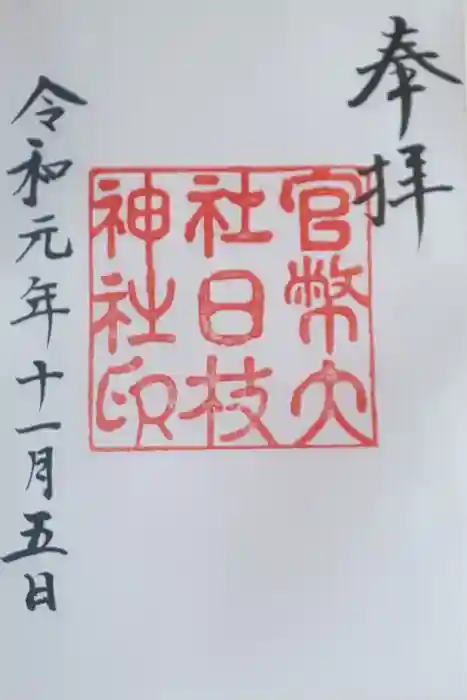 奉拝
官幣大
社日枝
神社印
令和元年十一月五日